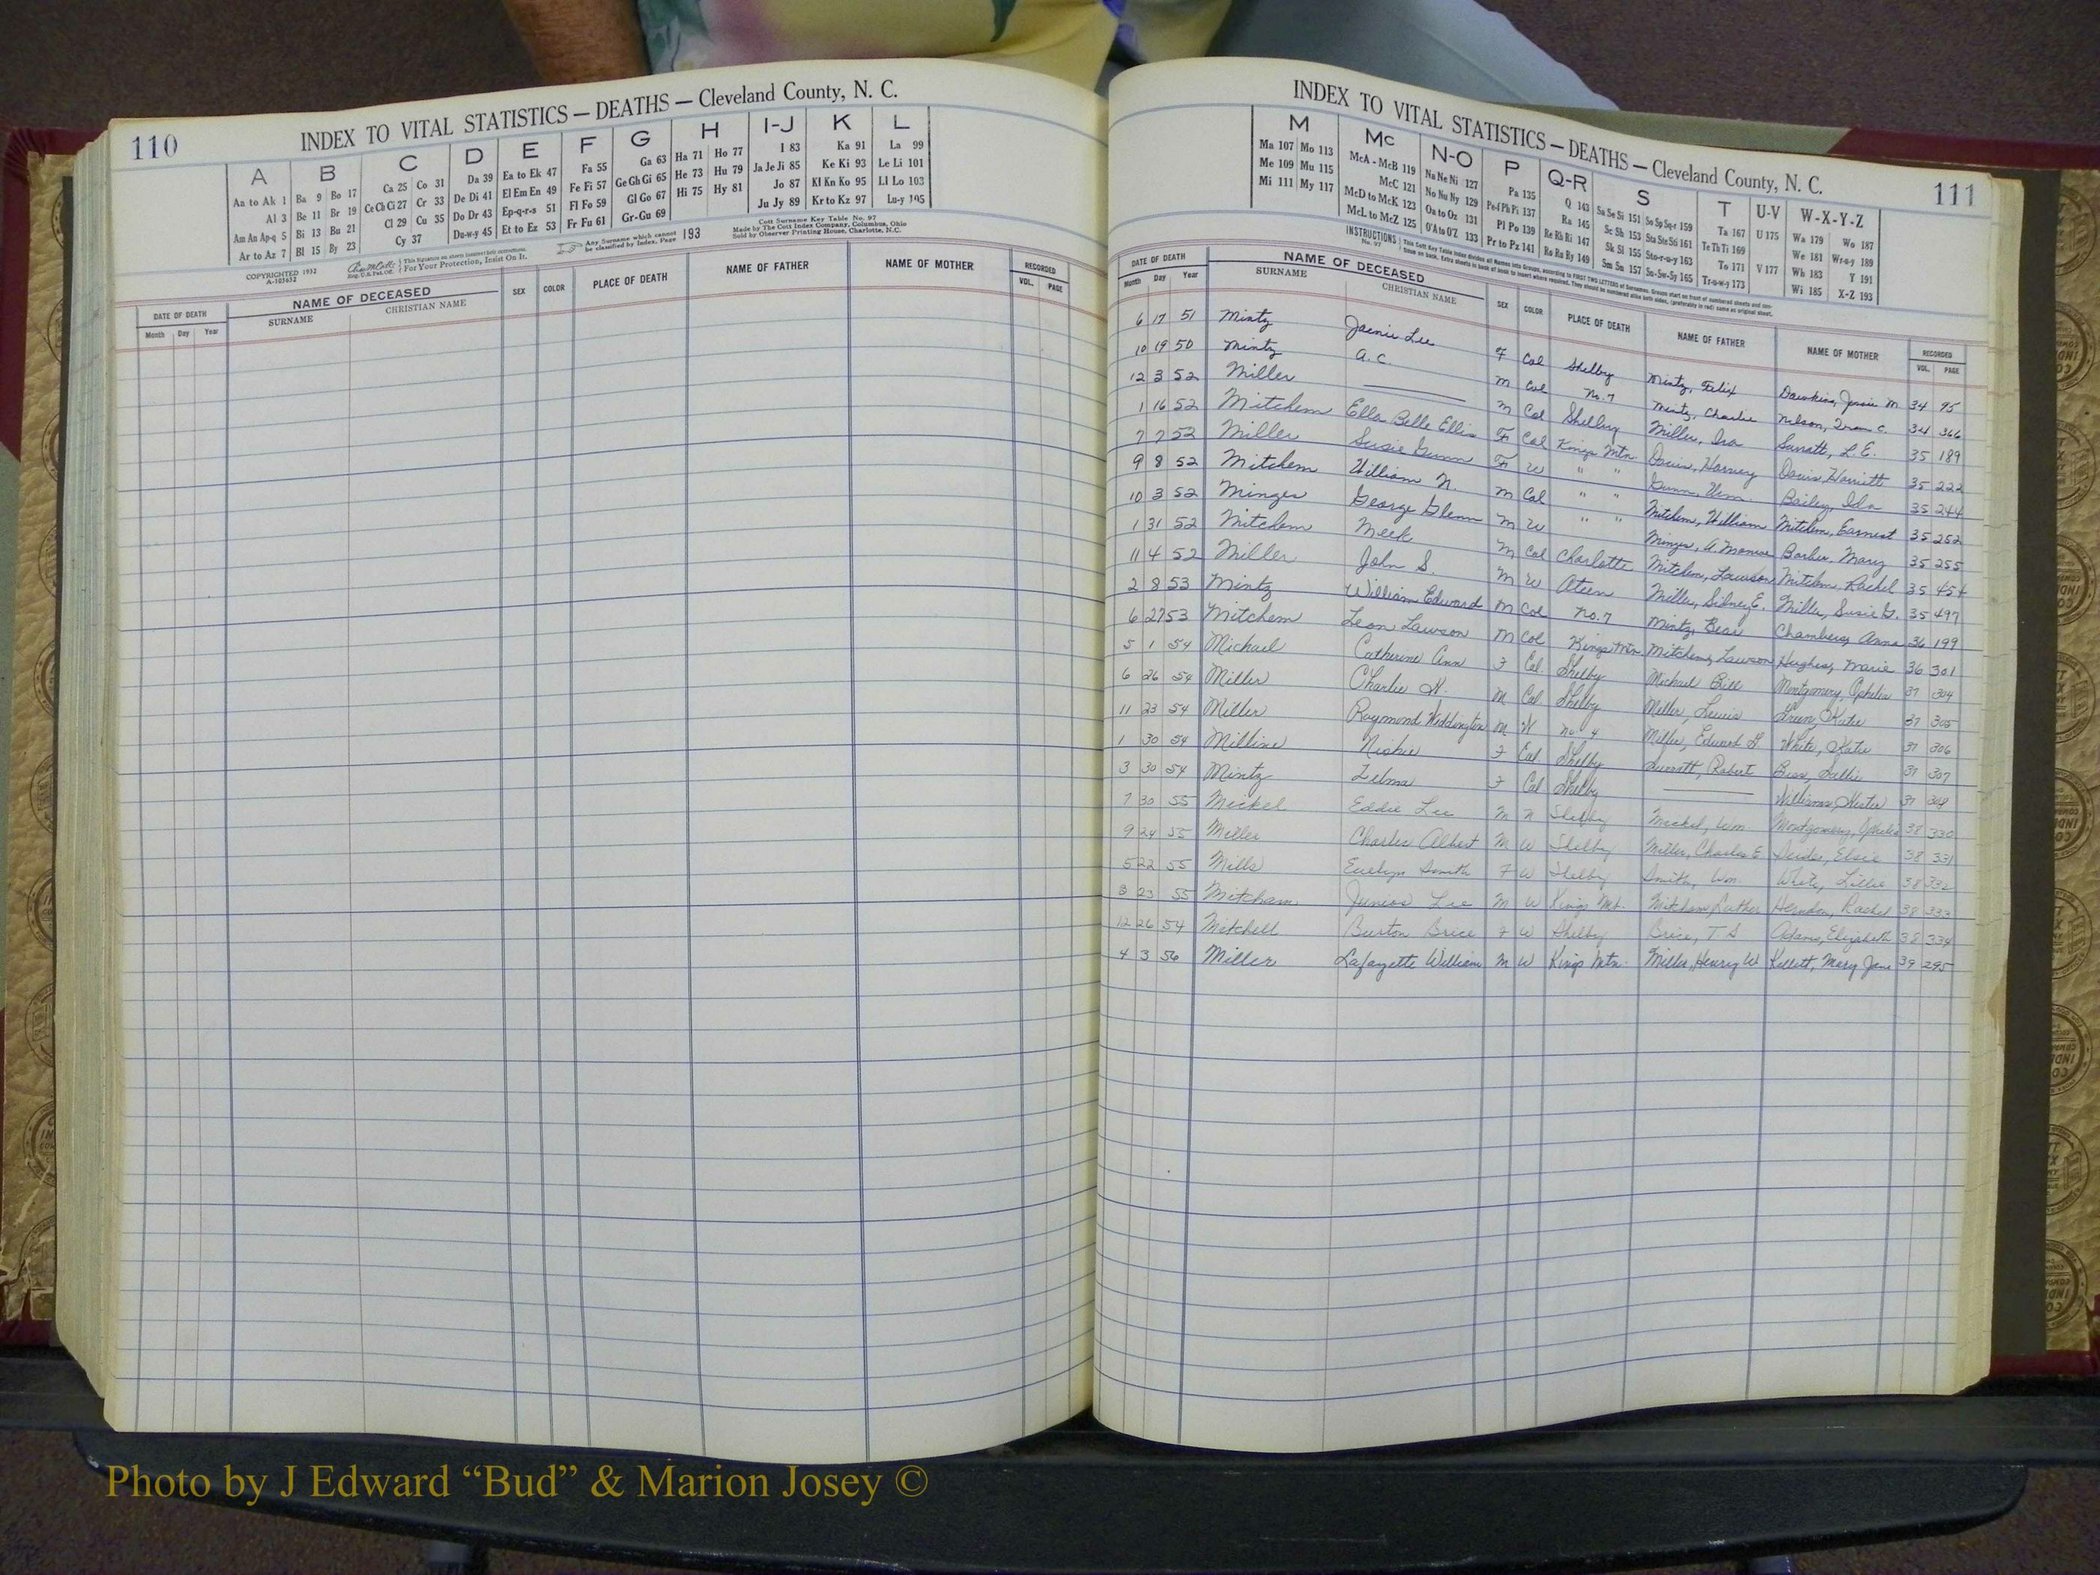 110
INDEX TO VITAL STATISTICS — DEATHS — Cleveland County, N. C.
A B C D E F G H I-J K L
Aa to Ak 1 Ba 9 Bo 17 Ca 25 Co 31 Da 39 Ea to Ek 47 Fa 55 Ga 63 Ha 71 Ho 77 I 83 Ka 91 La 99
Al 3 Be 11 Br 19 Ce Ch Ci 27 Cr 33 De Di 41 El Em En 49 Fe Fi 57 Ge Gh Gi 65 He 73 Hu 79 Ja Je Ji 85 Ke Ki 93 Le Li 101
Am An Ap-q 5 Bi 13 Bu 21 Cl 29 Cu 35 Do Dr 43 Ep-q-r-s 51 Fl Fo 59 Gl Go 67 Hi 75 Hy 81 Jo 87 Kl Kn Ko 95 Ll Lo 103
Ar to Az 7 Bl 15 By 23 Cy 37 Du-w-y 45 Et to Ez 53 Fr Fu 61 Gr-Gu 69 Ju Jy 89 Kr to Kz 97 Lu-y 105
COPYRIGHTED 1932
A-103652
For Your Protection, Insist On It.
Any Surname which cannot be classified by Index, Page 193
Cott Surname Key Table No. 97
Made by The Cott Index Company, Columbus, Ohio
Sold by Observer Printing House, Charlotte, N.C.
DATE OF DEATH NAME OF DECEASED SEX COLOR PLACE OF DEATH NAME OF FATHER NAME OF MOTHER RECORDED
Month Day Year SURNAME CHRISTIAN NAME VOL. PAGE
INDEX TO VITAL STATISTICS — DEATHS — Cleveland County, N. C.
111
M Mc N-O P Q-R S T U-V W-X-Y-Z
Ma 107 Mo 113 McA - McB 119 Na Ne Ni 127 Pa 135 Q 143 Sa Se Si 151 So Sp Sq-r 159 Ta 167 U 175 Wa 179 Wo 187
Me 109 Mu 115 McC 121 No Nu Ny 129 Pe-f Ph Pi 137 Ra 145 Sc Sh 153 Sta Ste Sti 161 Te Th Ti 169 We 181 Wr-u-y 189
Mi 111 My 117 McD to McK 123 Oa to Oz 131 Pl Po 139 Re Rh Ri 147 Sk Sl 155 Sto-r-u-y 163 To 171 V 177 Wh 183 Y 191
McL to McZ 125 O'A to O'Z 133 Pr to Pz 141 Ro Ru Ry 149 Sm Sn 157 Su-Sw-Sy 165 Tr-u-w-y 173 Wi 185 X-Z 193
INSTRUCTIONS
No. 97
DATE OF DEATH NAME OF DECEASED SEX COLOR PLACE OF DEATH NAME OF FATHER NAME OF MOTHER RECORDED
Month Day Year SURNAME CHRISTIAN NAME VOL. PAGE
6 17 51 Mintz Lee F Col Shelby Mintz, Felix Dawkins, M. 34 95
10 19 50 Mintz A. C. M Col No. 7 Mintz, Charlie Nelson, C. 34 366
12 3 52 Miller —— M Col Shelby Miller, Ira Sarratt, L. E. 35 189
1 16 52 Mitchem Ella Belle Ellis F Col Kings Mtn. Davis, Harvey Davis, Harriett 35 222
7 7 52 Miller Susie Gunn F W " " Gunn, Wm. Bailey, Ida 35 244
9 8 52 Mitchem William N. M Col " " Mitchem, William Mitchem, Earnest 35 252
10 3 52 Minges George Glenn M W " " Minges, A. Monroe Barber, Mary 35 255
1 31 52 Mitchem Meek M Col Charlotte Mitchem, Lawson Mitchem, Rachel 35 454
11 4 52 Miller John S. M W Miller, Sidney E. Miller, Susie G. 35 497
2 8 53 Mintz William Edward M Col No. 7 Mintz, Chambers, Anna 36 199
6 27 53 Mitchem Leon Lawson M Col Kings Mtn. Mitchem, Lawson Hughes, Marie 36 301
5 1 54 Michael Catherine Ann F Col Shelby Michael Bill Montgomery Ophelia 37 304
6 26 54 Miller Charlie M Col Shelby Miller, Lewis Green, Katie 37 305
11 23 54 Miller Raymond Weddington M W No 4 Miller, Edward White, Katie 37 306
1 30 54 F Col Shelby Robert Sallie 37 307
3 30 54 Mintz Zelma F Col Shelby —— Williams, Hester 37 308
7 30 55 Mickel Eddie Lee M N Shelby Mickel, Wm Montgomery, Ophelia 38 330
9 24 55 Miller Charles Albert M W Shelby Miller, Charles E Elsie 38 331
5 22 55 Mills Evelyn Smith F W Shelby Smith, Wm. White, Lillie 38 332
3 23 55 Mitcham Junious Lee M W Kings Mt. Mitcham, Luther Herndon, Rachel 38 333
12 26 54 Mitchell Burton Brice F W Shelby Brice, T S Adams, Elizabeth 38 334
4 3 56 Miller Lafayette William M W Kings Mtn. Miller, Henry W Kellett, Mary Jane 39 295
Photo by J Edward “Bud” & Marion Josey ©